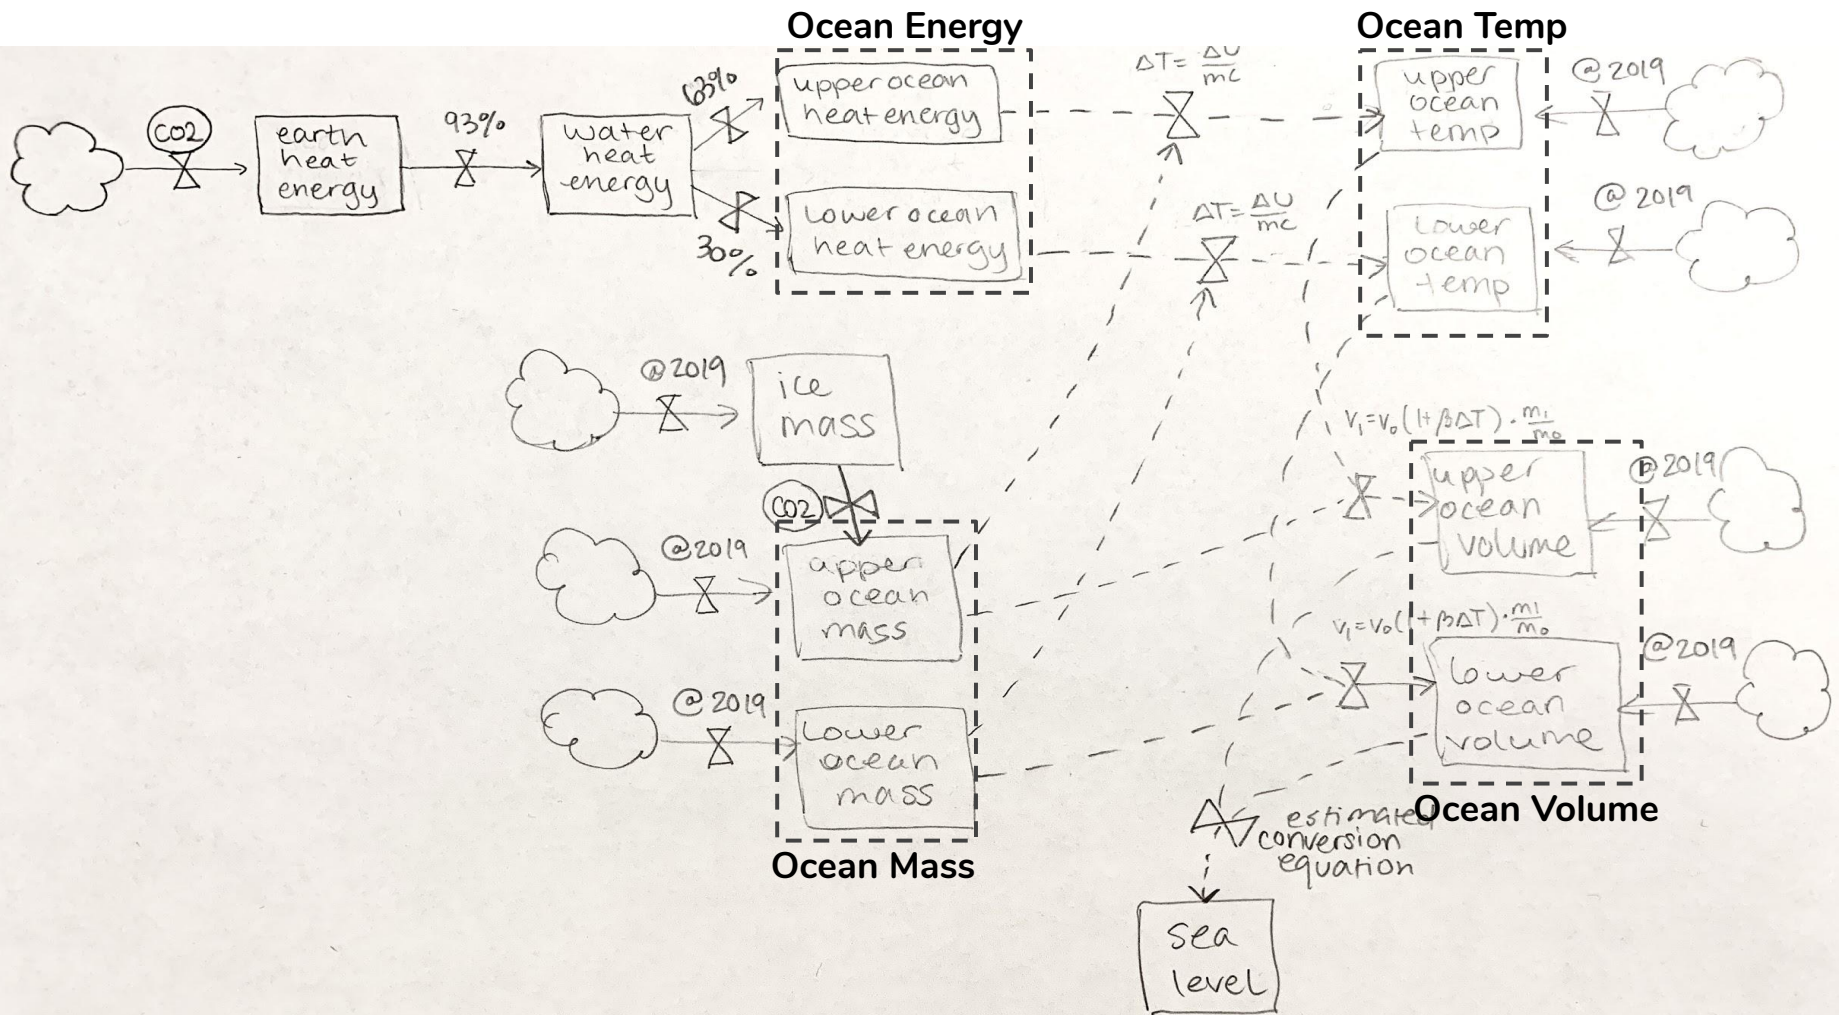 Ocean Energy
Ocean Temp
CO2
earth
heat
energy
93%
water
heat
energy
63%
30%
upper ocean
heat energy
lower ocean
heat energy
ΔT = ΔU
mc
ΔT = ΔU
mc
upper
ocean
temp
@2019
lower
ocean
temp
@2019
@2019
ice
mass
CO2
@2019
upper
ocean
mass
@2019
lower
ocean
mass
Ocean Mass
V₁=V₀(1+βΔT)·m₁
m₀
upper
ocean
volume
@2019
V₁=V₀(1+βΔT)·m₁
m₀
lower
ocean
volume
@2019
Ocean Volume
estimated
conversion
equation
sea
level